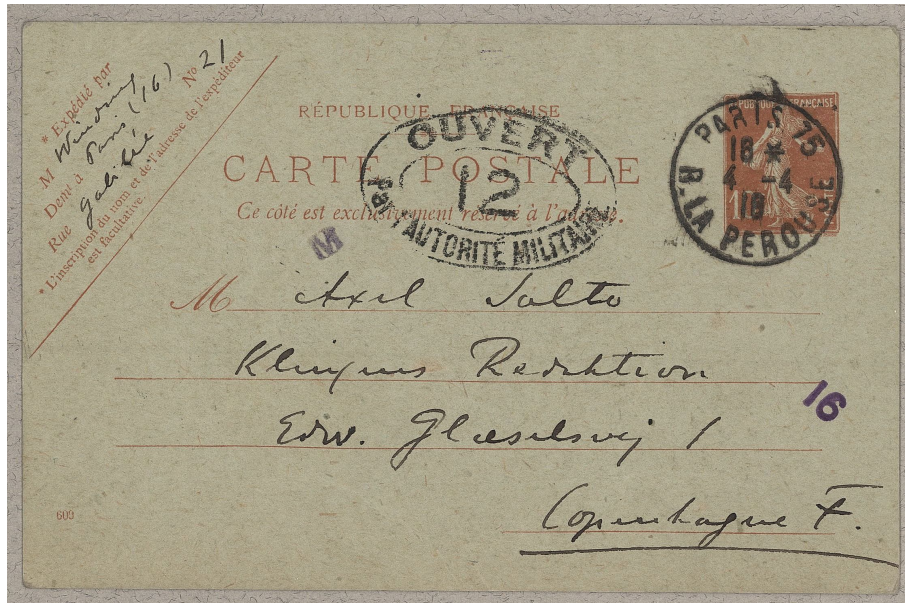 * Expédié par
M Winding Nº 21
Demt à Paris (16)
Rue Galilée
* L'inscription du nom et de l'adresse de l'expéditeur
est facultative.
RÉPUBLIQUE FRANÇAISE
CARTE POSTALE
Ce côté est exclusivement réservé à l'adresse.
OUVERT
12
PAR L'AUTORITÉ MILITAIRE
PARIS 75
18 *
4 -4
18
R. LA PEROUSE
M
M Axel Salto
Klingens Redaktion
16
Edv. Glæselsvej 1
Copenhague F.
600